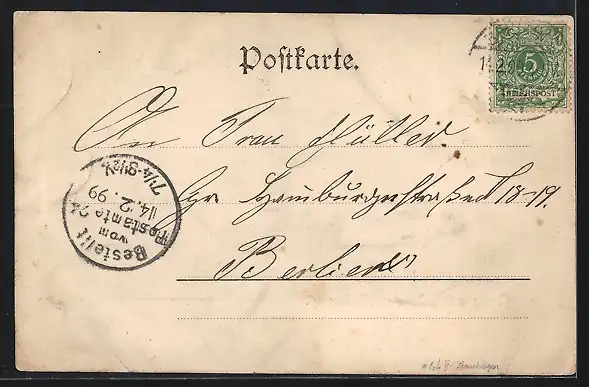 Postkarte.
5
REICHSPOST
14.2.
An Frau Müller
Gr. Hamburgerstraße 18-19.
Berlin
Bestellt
vom
Postamte 24
14. 2. 99
7¼-8½V.